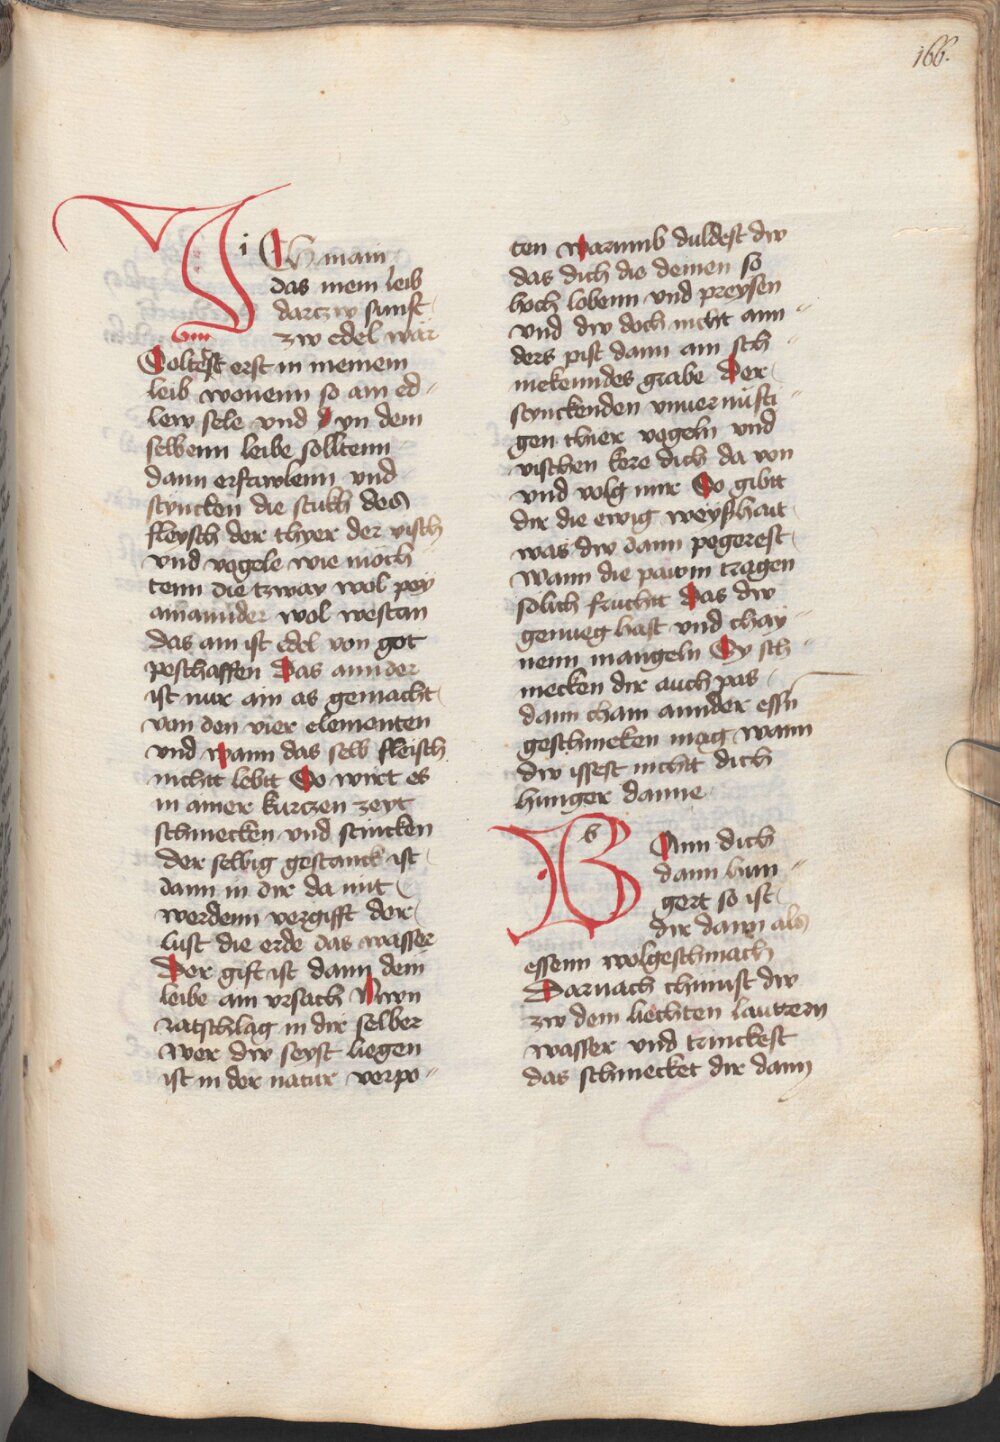 166.
i Ch main
das mein leib
darczw sunft
zw edel wär
Soltest erst in meinem
leib wonenn so ain ed-
lew sele vnd Jn dem
selbenn leibe solltenn
dann erfawlenn vnd
stincken die stukh des
fleysch der thyer der visch
vnd vogele wie möch
tenn die tzway wol pey
ainannder wol westan
das ain ist edel von got
peschaffen Das annder
ist nur ain as gemacht
von den vier elementen
vnd wann das selb fleisch
nichtt lebtt So wirt es
in ainer kurczen zeyt
schmecken vnd stincken
der selbig gestanck ist
dann in dir da mit
werdenn vergifft der
lust die erde das wasser
Der gift ist dann dem
leibe ain vrsach Nwn
ratschlag in dir selber
wer dw seyst liegen
ist in der natur verpo-
ten warumb duldest dw
das dich die deinen so
hoch lobenn vnd preysen
vnd dw doch nicht ann-
ders pist dann ain sch-
mekenndes grabe Der
stynckenden vnuernüfti-
gen thier vogeln vnd
vischen kere dich da von
vnd volg mir So gibtt
dir die ewig weyßhait
was dw dann pegerest
Wann die pawm tragen
sölich fruchtt Das dw
genueg hast vnd chay-
nenn mangeln Sy sch-
mecken dir auch pas
dann chain annder essn
geschmeken mag wann
dw issest nichtt dich
hunger danne
b Ann dich
dann hun-
gert so ist
dir dann als
essenn wolgeschmach
Darnach chumst dw
zw dem liechten lauttern
wasser vnd trinckest
das schmecket dir dann